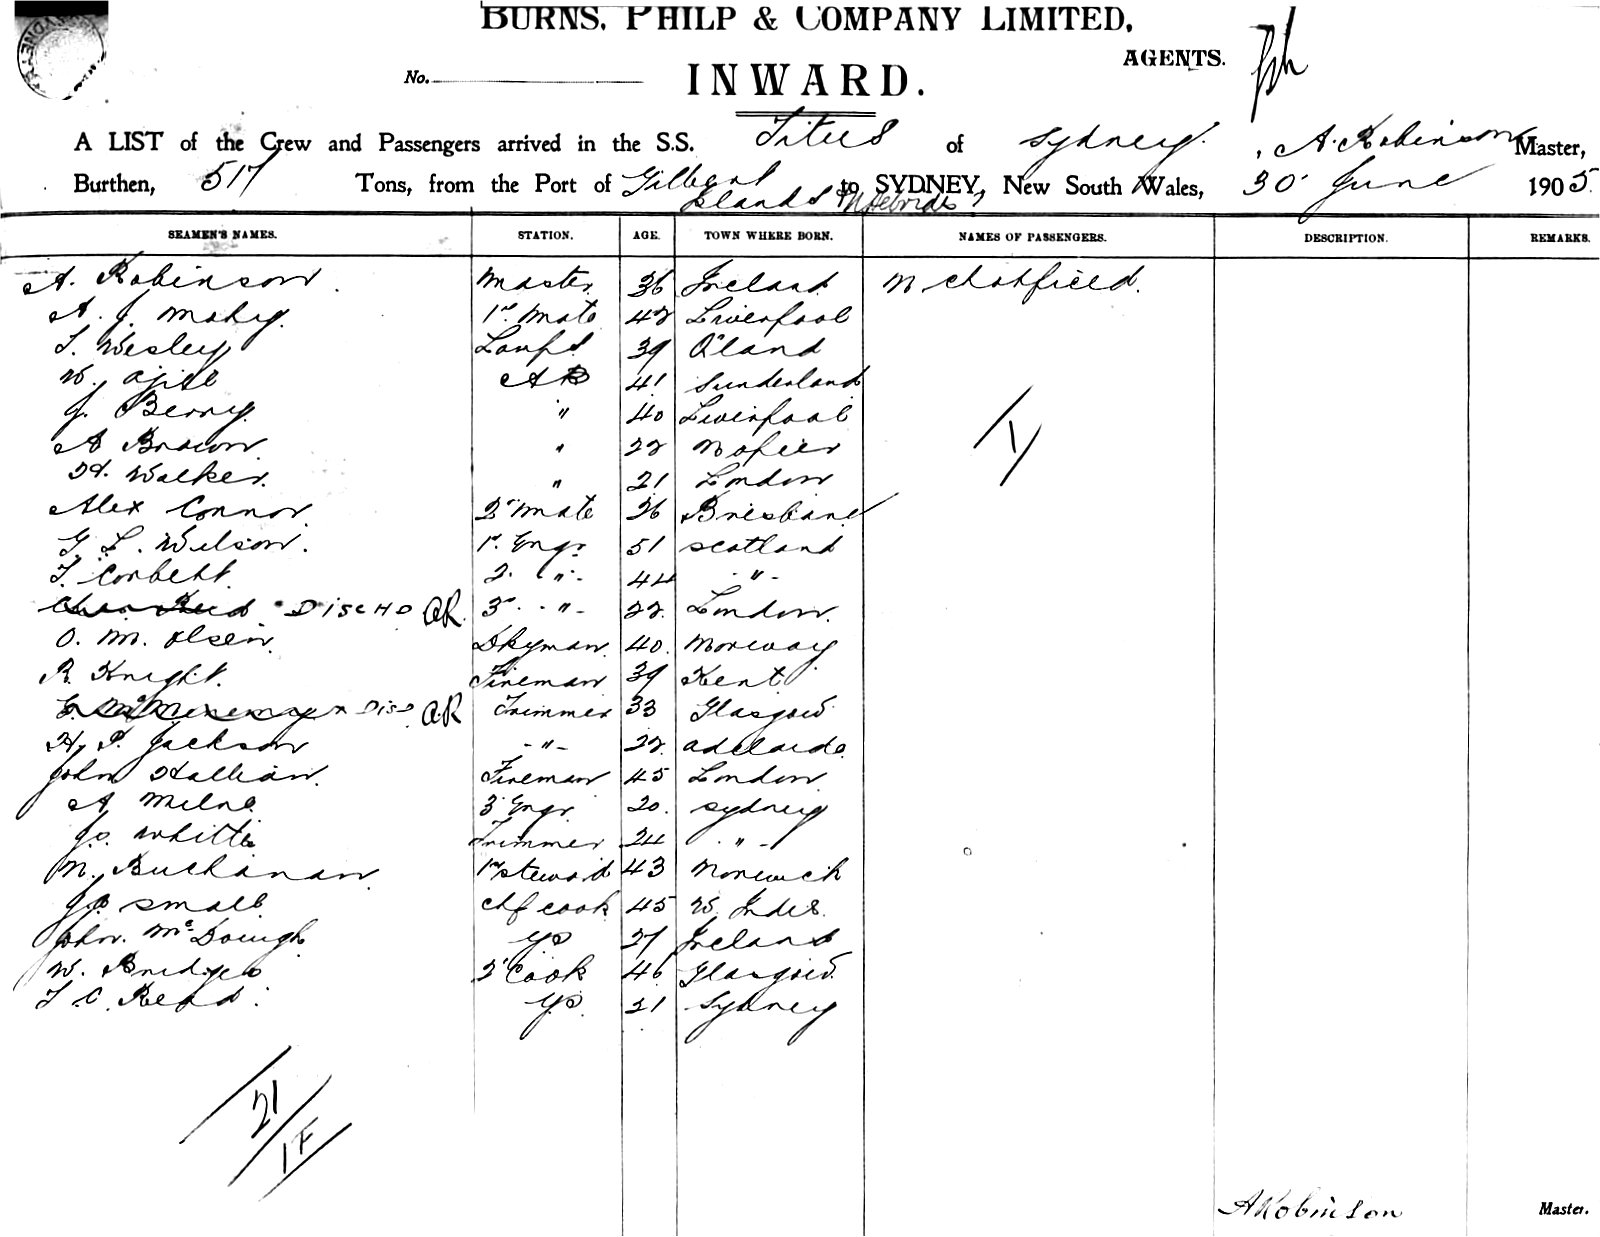 BURNS, PHILP & COMPANY LIMITED,
AGENTS.
No.
INWARD.
A LIST of the Crew and Passengers arrived in the S.S. Titus of Sydney, A. Robinson Master,
Burthen, 517 Tons, from the Port of Gilbert Islands & N Hebrides to SYDNEY, New South Wales, 30 June 1905.
SEAMEN'S NAMES. STATION. AGE. TOWN WHERE BORN. NAMES OF PASSENGERS. DESCRIPTION. REMARKS.
A. Robinson Master 36 Ireland M Chatfield.
A. J. 1st Mate 42 Liverpool
T. Wesley Lamps 39 Q'land
W. AB 41 Sunderland
J. Berry " 40 Liverpool
A Brown " 22 Napier
H. Walker. " 21 London
Alex Connor. 2nd Mate 26 Brisbane
G. L. Wilson. 1st Engr 51 Scotland
T. Corbett 2 " 44 "
Chas Reid DISCHD AR 3rd " 22 London.
O. M. Olsen. Dkyman 40 Norway
R. Knight. Fireman 39 Kent
DISD AR Trimmer 33 Glasgow
H. P. Jackson " 22 Adelaide
John Fireman 45 London
A Milne 3 Engr 20 Sydney
Jas. White Trimmer 24 "
N. Buchanan 1st Steward 43 Norwich
Js. Small Chf Cook 45 W. Indies
John. McDough 27 Ireland
W. Bridges 2nd Cook 46 Glasgow
T. C. Read 21 Sydney
1
21
1F
A Robinson Master.